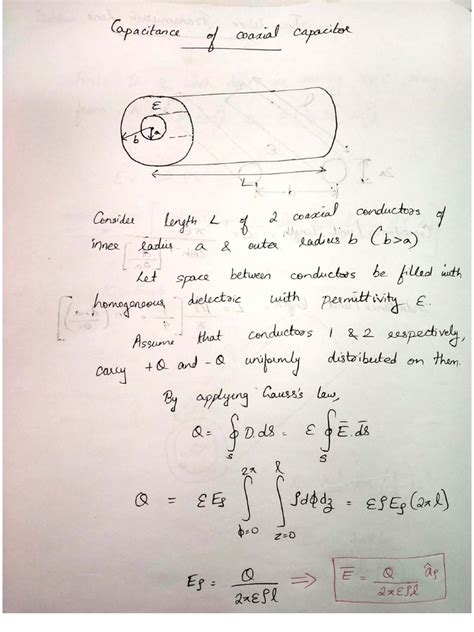 Capacitance of coaxial capacitor
ε
b
a
ε
L
Consider length L of 2 coaxial conductors of
inner radius a & outer radius b (b>a)
Let space between conductors be filled with
homogeneous dielectric with permittivity ε.
Assume that conductors 1 & 2 respectively,
carry +Q and -Q uniformly distributed on them.
By applying Gauss's law,
Q = ∮_S D.ds = ε ∮_S E̅.d̅s̅
Q = εE_ρ ∫_{ϕ=0}^{2π} ∫_{z=0}^{l} ρdϕdz = ερE_ρ(2πl)
E_ρ = Q/(2περl) ⇒ E̅ = Q/(2περl) â_ρ